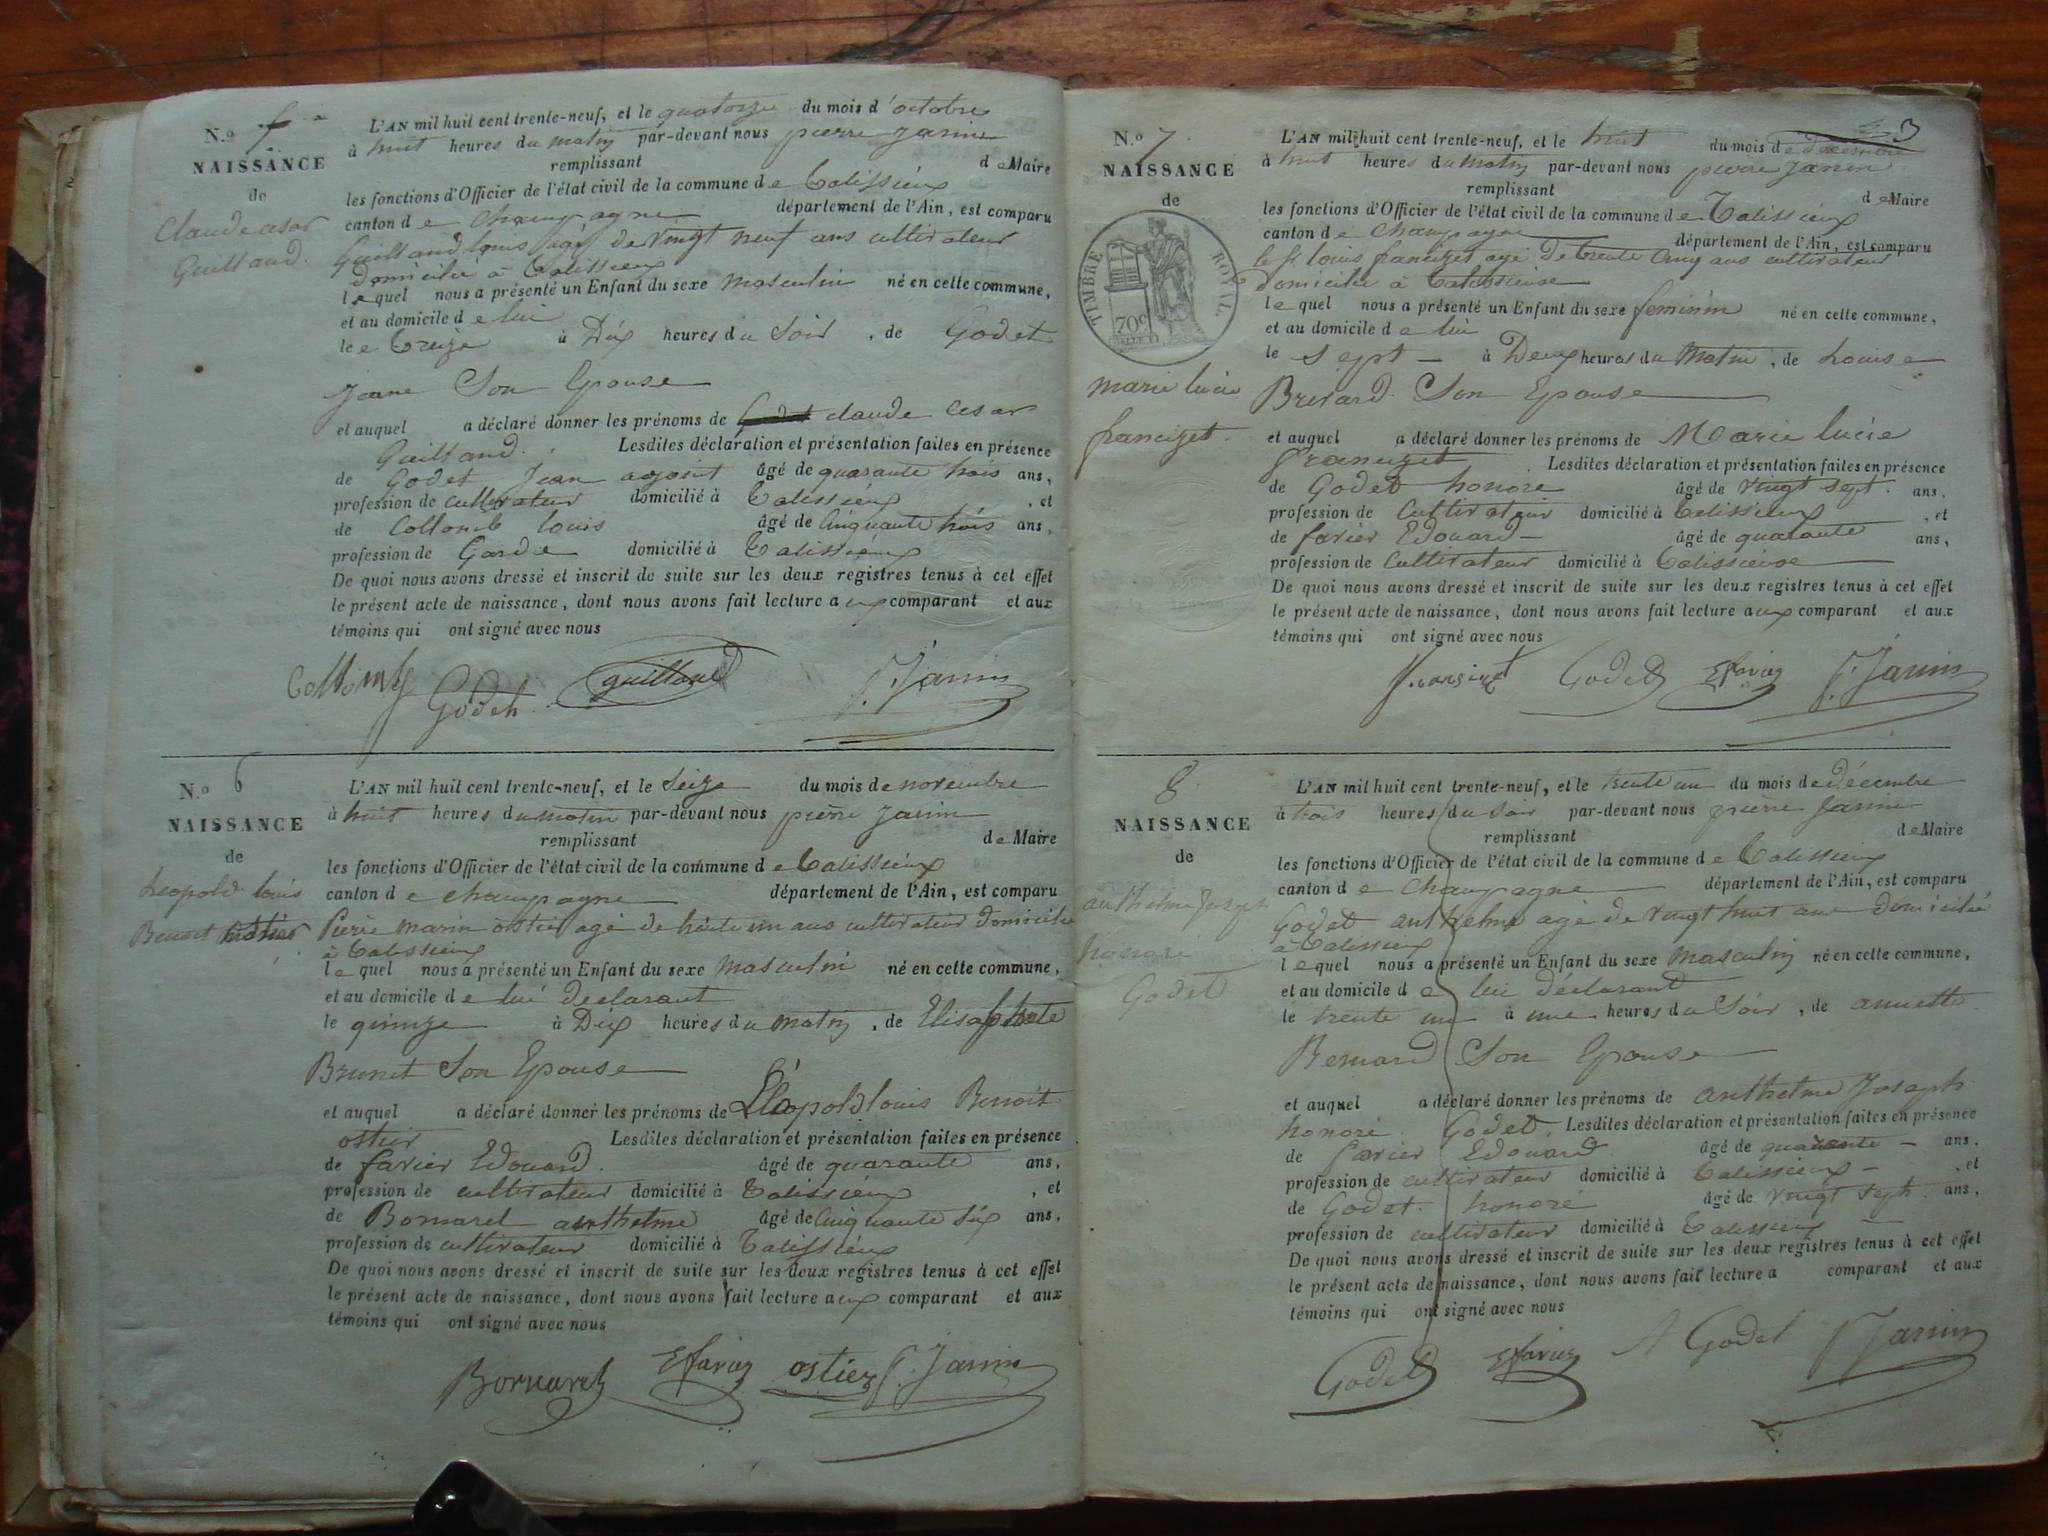 N.o 5
NAISSANCE
de
Claude cesar
Guilland.
L'AN mil huit cent trente-neuf, et le quatorze du mois d'octobre
à huit heures du matin par-devant nous pierre Janin
remplissant de Maire
les fonctions d'Officier de l'état civil de la commune de Talissieux
canton de Champagne département de l'Ain, est comparu
Guilland louis agé de vingt neuf ans cultivateur
domicilié à Talissieux
lequel nous a présenté un Enfant du sexe masculin né en cette commune,
et au domicile de lui
le treize à Dix heures du Soir, de Godet
Jeane Son Epouse
et auquel a déclaré donner les prénoms de claude Cesar
Guilland. Lesdites déclaration et présentation faites en présence
de Godet Jean agé de quarante trois ans,
profession de cultivateur domicilié à Talissieux, et
de Collomb louis âgé de Cinquante trois ans,
profession de Garde domicilié à Talissieux
De quoi nous avons dressé et inscrit de suite sur les deux registres tenus à cet effet
le présent acte de naissance, dont nous avons fait lecture aux comparant et aux
témoins qui ont signé avec nous
Collomb Godet guilland P. Janin
N.o 6
NAISSANCE
de
Leopold louis
Benoit ostier
L'AN mil huit cent trente-neuf, et le Seize du mois de novembre
à huit heures du matin par-devant nous pierre Janin
remplissant de Maire
les fonctions d'Officier de l'état civil de la commune de Talissieux
canton de champagne département de l'Ain, est comparu
Pierre marin ostier agé de trente un ans cultivateur domicilié
à Talissieux
lequel nous a présenté un Enfant du sexe masculin né en cette commune,
et au domicile de lui declarant
le quinze à Dix heures du matin, de Elisabhete
Brunet Son Epouse
et auquel a déclaré donner les prénoms de Léopold louis Benoit
ostier Lesdites déclaration et présentation faites en présence
de favier Edouard. âgé de quarante ans,
profession de cultivateur domicilié à Talissieux, et
de Bornarel anthelme âgé de Cinquante six ans,
profession de cultivateur domicilié à Talissieux
De quoi nous avons dressé et inscrit de suite sur les deux registres tenus à cet effet
le présent acte de naissance, dont nous avons fait lecture aux comparant et aux
témoins qui ont signé avec nous
Bornarel Efavier ostier P. Janin
3
N.o 7
NAISSANCE
de
TIMBRE ROYAL.
70c
marie lucie
francizet.
L'AN mil huit cent trente-neuf, et le huit du mois de decembre
à huit heures du matin par-devant nous pierre Janin
remplissant de Maire
les fonctions d'Officier de l'état civil de la commune de Talissieux
canton de Champagne département de l'Ain, est comparu
le Sr louis francizet agé De trente Cinq ans cultivateur
domicilié à Talissieux
lequel nous a présenté un Enfant du sexe feminin né en cette commune,
et au domicile de lui
le Sept à Deux heures du Matin, de Louise
Brevard Son Epouse
et auquel a déclaré donner les prénoms de Marie lucie
francizet. Lesdites déclaration et présentation faites en présence
de Godet honore âgé de vingt sept. ans,
profession de Cultivateur domicilié à Talissieux, et
de favier Edouard âgé de quarante ans,
profession de Cultivateur domicilié à Talissieux
De quoi nous avons dressé et inscrit de suite sur les deux registres tenus à cet effet
le présent acte de naissance, dont nous avons fait lecture aux comparant et aux
témoins qui ont signé avec nous
Godet Efavier P. Janin
8
NAISSANCE
de
anthelme Joseph
honoré
Godet
L'AN mil huit cent trente-neuf, et le trente un du mois de décembre
à trois heures du soir par-devant nous pierre Janin
remplissant de Maire
les fonctions d'Officier de l'état civil de la commune de Talissieux
canton de Champagne département de l'Ain, est comparu
Godet anthelme agé de vingt huit ans domicilié
à Talissieux
lequel nous a présenté un Enfant du sexe masculin né en cette commune,
et au domicile de lui déclarant
le trente un à une heures du Soir, de annette
Bernard Son Epouse
et auquel a déclaré donner les prénoms de anthelme Joseph
honoré Godet. Lesdites déclaration et présentation faites en présence
de favier Edouard âgé de quarante ans,
profession de cultivateur domicilié à Talissieux, et
de Godet honoré âgé de vingt sept. ans,
profession de cultivateur domicilié à Talissieux
De quoi nous avons dressé et inscrit de suite sur les deux registres tenus à cet effet
le présent acte de naissance, dont nous avons fait lecture a comparant et aux
témoins qui ont signé avec nous
Godet Efavier A Godet P. Janin